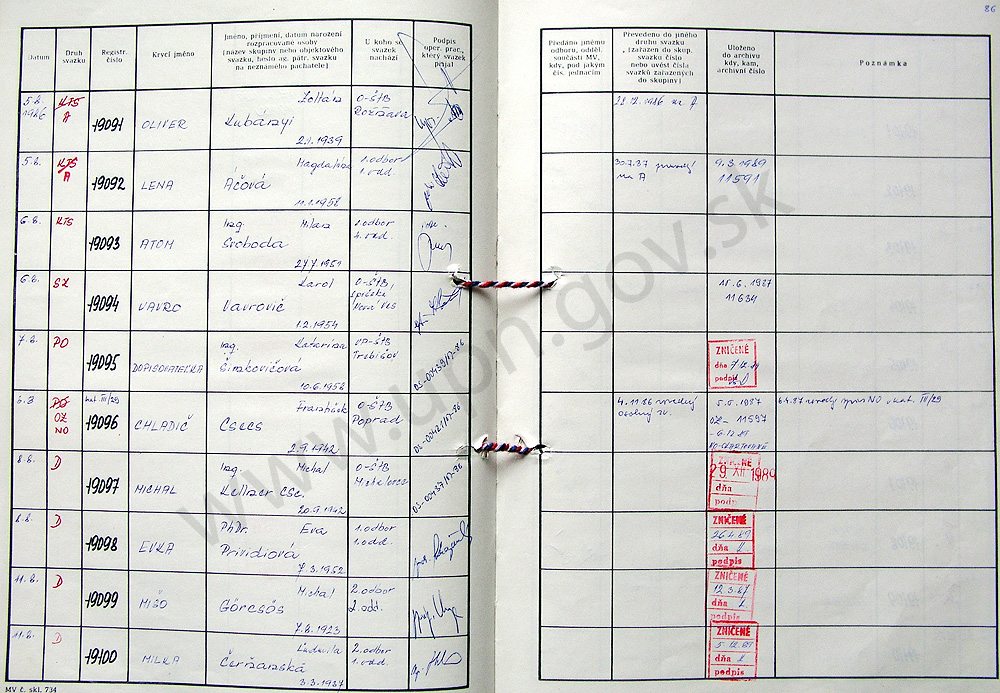 86
Datum
Druh svazku
Registr. číslo
Krycí jméno
Jméno, příjmení, datum narození
rozpracované osoby
(název skupiny nebo objektového
svazku, heslo ag. pátr. svazku
na neznámého pachatele)
U koho se
svazek
nachází
Podpis
oper. prac.,
který svazek
přijal
Předáno jinému
odboru, odděl.
součásti MV,
kdy, pod jakým
čís. jednacím
Převedeno do jiného
druhu svazku
(zařazen do skup.
svazku číslo
nebo uvést čísla
svazků zařazených
do skupiny)
Uloženo
do archivu
kdy, kam,
archivní číslo
Poznámka
5.2.
1986
KTS
A
19091
OLIVER
Zoltán
Kubányi
2.1.1939
O-ŠtB
Rožňava
22.12.1986 na A
5.2.
KTS
A
19092
LENA
Magdaléna
Áčová
11.1.1956
1.odbor
1.odd.
30.7.87
na A
9.3.1989
11591
6.2.
KTS
19093
ATOM
Ing. Milan
Svoboda
27.7.1951
1.odbor
4.odd
6.2.
SZ
19094
VAVRO
Karol
Vavrovič
1.2.1954
O-ŠtB,
Spišská
Nová Ves
15.6.1987
11634
7.2.
PO
19095
DOPISOVATEĽKA
Ing. Katarína
Širakovičová
10.6.1956
O-ŠtB
Trebišov
OS-00439/17-86
ZNIČENÉ
dňa
podpis
PO
OZ
NO
kat. III/29
19096
CHLADIČ
František
Csecs
2.9.1942
O-ŠtB
Poprad
4.11.86
5.5.1987
OZ - 11597
kat. III/29
8.2.
D
19097
MICHAL
Ing. Michal
Kellner CSc.
20.9.1942
O-ŠtB
Michalovce
OS-00437/17-86
ZNIČENÉ
29. XII. 1989
dňa
podpis
D
19098
EVKA
PhDr. Eva
Prividiová
7.3.1952
1.odbor
1.odd.
ZNIČENÉ
26.4.89
dňa
podpis
11.2.
D
19099
MIŠO
Michal
Görcsös
7.2.1923
2.odbor
2.odd.
ZNIČENÉ
12.3.87
dňa
podpis
11.2.
D
19100
MILKA
Ľudmila
Čerňanská
3.3.1937
2.odbor
1.odd.
ZNIČENÉ
5.12.89
dňa
podpis
MV č. skl. 734
www.upn.gov.sk